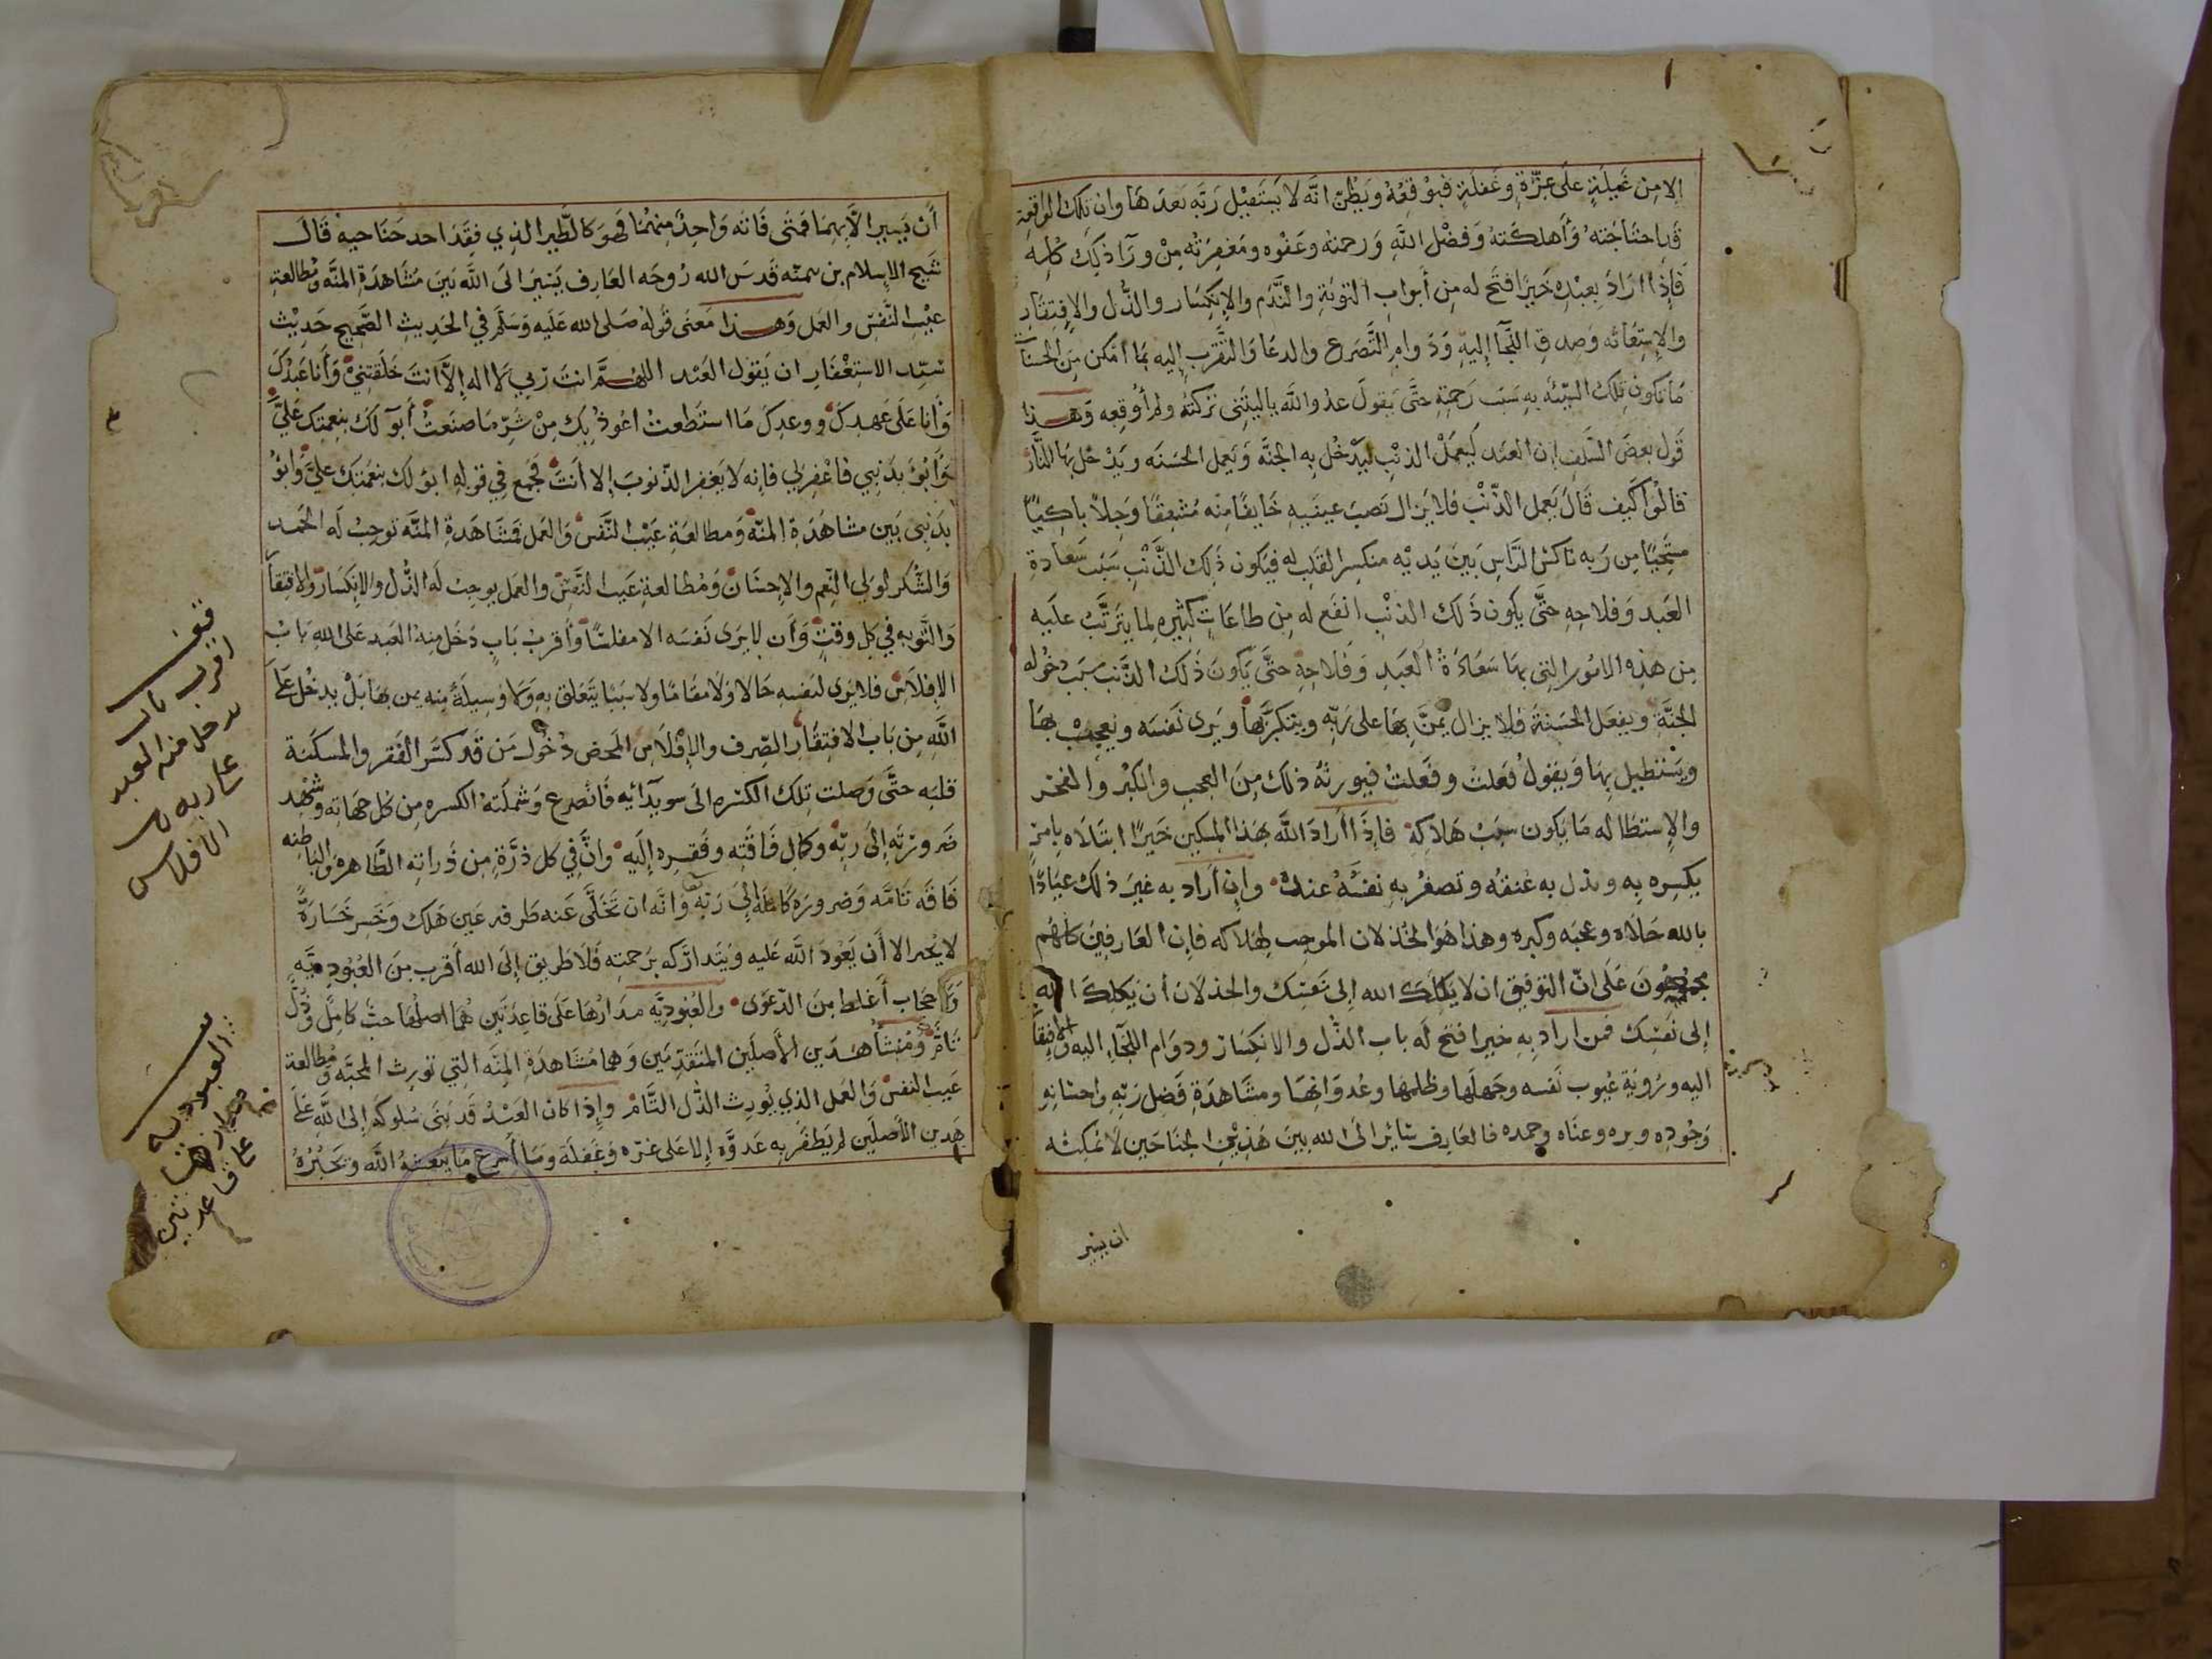 الا من غيلة على غرة وغفلة فيوقعه ويظن انه لا يستقبل ربه بعدها وان تلك الواقعة
قد اجتاحته وأهلكته وفضل الله ورحمته وعفوه ومغفرته من ورآ ذلك كله
فإذا اراد بعبده خيرا فتح له من أبواب التوبة والندم والإنكسار والذل والإفتقار
والإستغاثه وصدق اللجآ إليه ودوام التضرع والدعا والتقرب إليه بما أمكن من الحسنات
ما تكون تلك السيئة به سبب رحمته حتى يقول عدو الله ياليتني تركته ولم أوقعه وهذا
قول بعض السلف إن العبد ليعمل الذنب ليدخل به الجنة ويعمل الحسنه ويدخل بها النار
قالوا كيف قال يعمل الذنب فلا يزال نصب عينيه خايفا منه مشفقا وجلا باكيا
مستحيا من ربه ناكس الراس بين يديه منكسر القلب له فيكون ذلك الذنب سبب سعادة
العبد وفلاحه حتى يكون ذلك الذنب انفع له من طاعات كثيره لما يترتب عليه
من هذه الامور التي بها سعادة العبد وفلاحه حتى يكون ذلك الذنب سبب دخوله
الجنة ويفعل الحسنة فلا يزال يمن بها على ربه ويتكبر بها ويرى نفسه ويعجب بها
ويستطيل بها ويقول فعلت وفعلت فيورثه ذلك من العجب والكبر والفخر
والإستطاله ما يكون سبب هلاكه فإذا أراد الله بهذا المسكين خيرا ابتلاه بامر
يكسره به ويذل به عنقه وتصغر به نفسه عنده وإن أراد به غير ذلك عياذا
بالله خلاه وعجبه وكبره وهذا هو الخذلان الموجب لهلاكه فإن العارفين كلهم
مجمعون على ان التوفيق ان لا يكلك الله إلى نفسك والخذلان أن يكلك الله
إلى نفسك فمن اراد به خيرا فتح له باب الذل والانكسار ودوام اللجآء اليه والافتقار
اليه ورؤية عيوب نفسه وجهلها وظلمها وعدوانها ومشاهدة فضل ربه واحسانه
وجوده وبره وغناه وحمده فالعارف سائر الى الله بين هذين الجناحين لا يمكنه
ان يسير
أن يسير الا بهما فمتى فاته واحد منهما فهو كالطير الذي فقد احد جناحيه قال
شيخ الإسلام بن تيميه قدس الله روحه العارف يسير الى الله بين مشاهدة المنه ومطالعة
عيب النفس والعمل وهذا معنى قوله صلى الله عليه وسلم في الحديث الصحيح حديث
سيد الاستغفار ان يقول العبد اللهم انت ربي لا اله إلا انت خلقتني وأنا عبدك
وأنا على عهدك ووعدك ما استطعت اعوذ بك من شر ما صنعت أبوء لك بنعمتك علي
وأبوء بذنبي فاغفر لي فإنه لا يغفر الذنوب إلا أنت فجمع في قوله ابوء لك بنعمتك علي وابوء
بذنبي بين مشاهدة المنه ومطالعة عيب النفس والعمل فمشاهدة المنه توجب له الحمد
والشكر لولي النعم والاحسان ومطالعة عيب النفس والعمل يوجب له الذل والإنكسار والافتقار
والتوبه في كل وقت وأن لا يرى نفسه الا مفلسا وأقرب باب دخل منه العبد على الله باب
الإفلاس فلا يرى لنفسه حالا ولا مقاما ولا سببا يتعلق به ولا وسيلة منه يمن بها بل يدخل على
الله من باب الافتقار الصرف والإفلاس المحض دخول من قد كسر الفقر والمسكنة
قلبه حتى وصلت تلك الكسره الى سويدآئه فانصدع وشملته الكسره من كل جهاته وشهد
ضرورته إلى ربه وكمال فاقته وفقره إليه وان في كل ذرة من ذراته الظاهره والباطنه
فاقه تامه وضروره كامله إلى ربه وانه ان تخلى عنه طرفه عين هلك وخسر خسارة
لا تجبر الا أن يعود الله عليه ويتداركه برحمته فلا طريق إلى الله أقرب من العبوديه
ولا حجاب أغلظ من الدعوى والعبوديه مدارها على قاعدتين هما اصلها حب كامل وذل
تام ومنشأ هذين الأصلين المتقدمين وهما مشاهدة المنه التي تورث المحبه ومطالعة
عيب النفس والعمل الذي يورث الذل التام وإذا كان العبد قد بنى سلوكه إلى الله على
هذين الأصلين لم يظفر به عدوه إلا على غره وغفله وما أسرع ما ينعشه الله ويجبره
قف
اقرب باب
دخل منه العبد
على ربه
الافلاس
العبوديه
مدارها
على قاعدتين